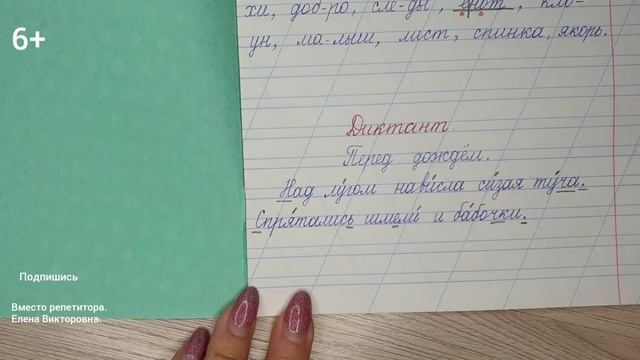 6+
хи, доб-ро, сле-ды, енот, кло-
ун, ма-лыш, лист, спинка, якорь.
Диктант.
Перед дождём.
Над лу́гом нави́сла си́зая ту́ча.
Спря́тались шмели́ и ба́бочки.
Подпишись
Вместо репетитора.
Елена Викторовна.